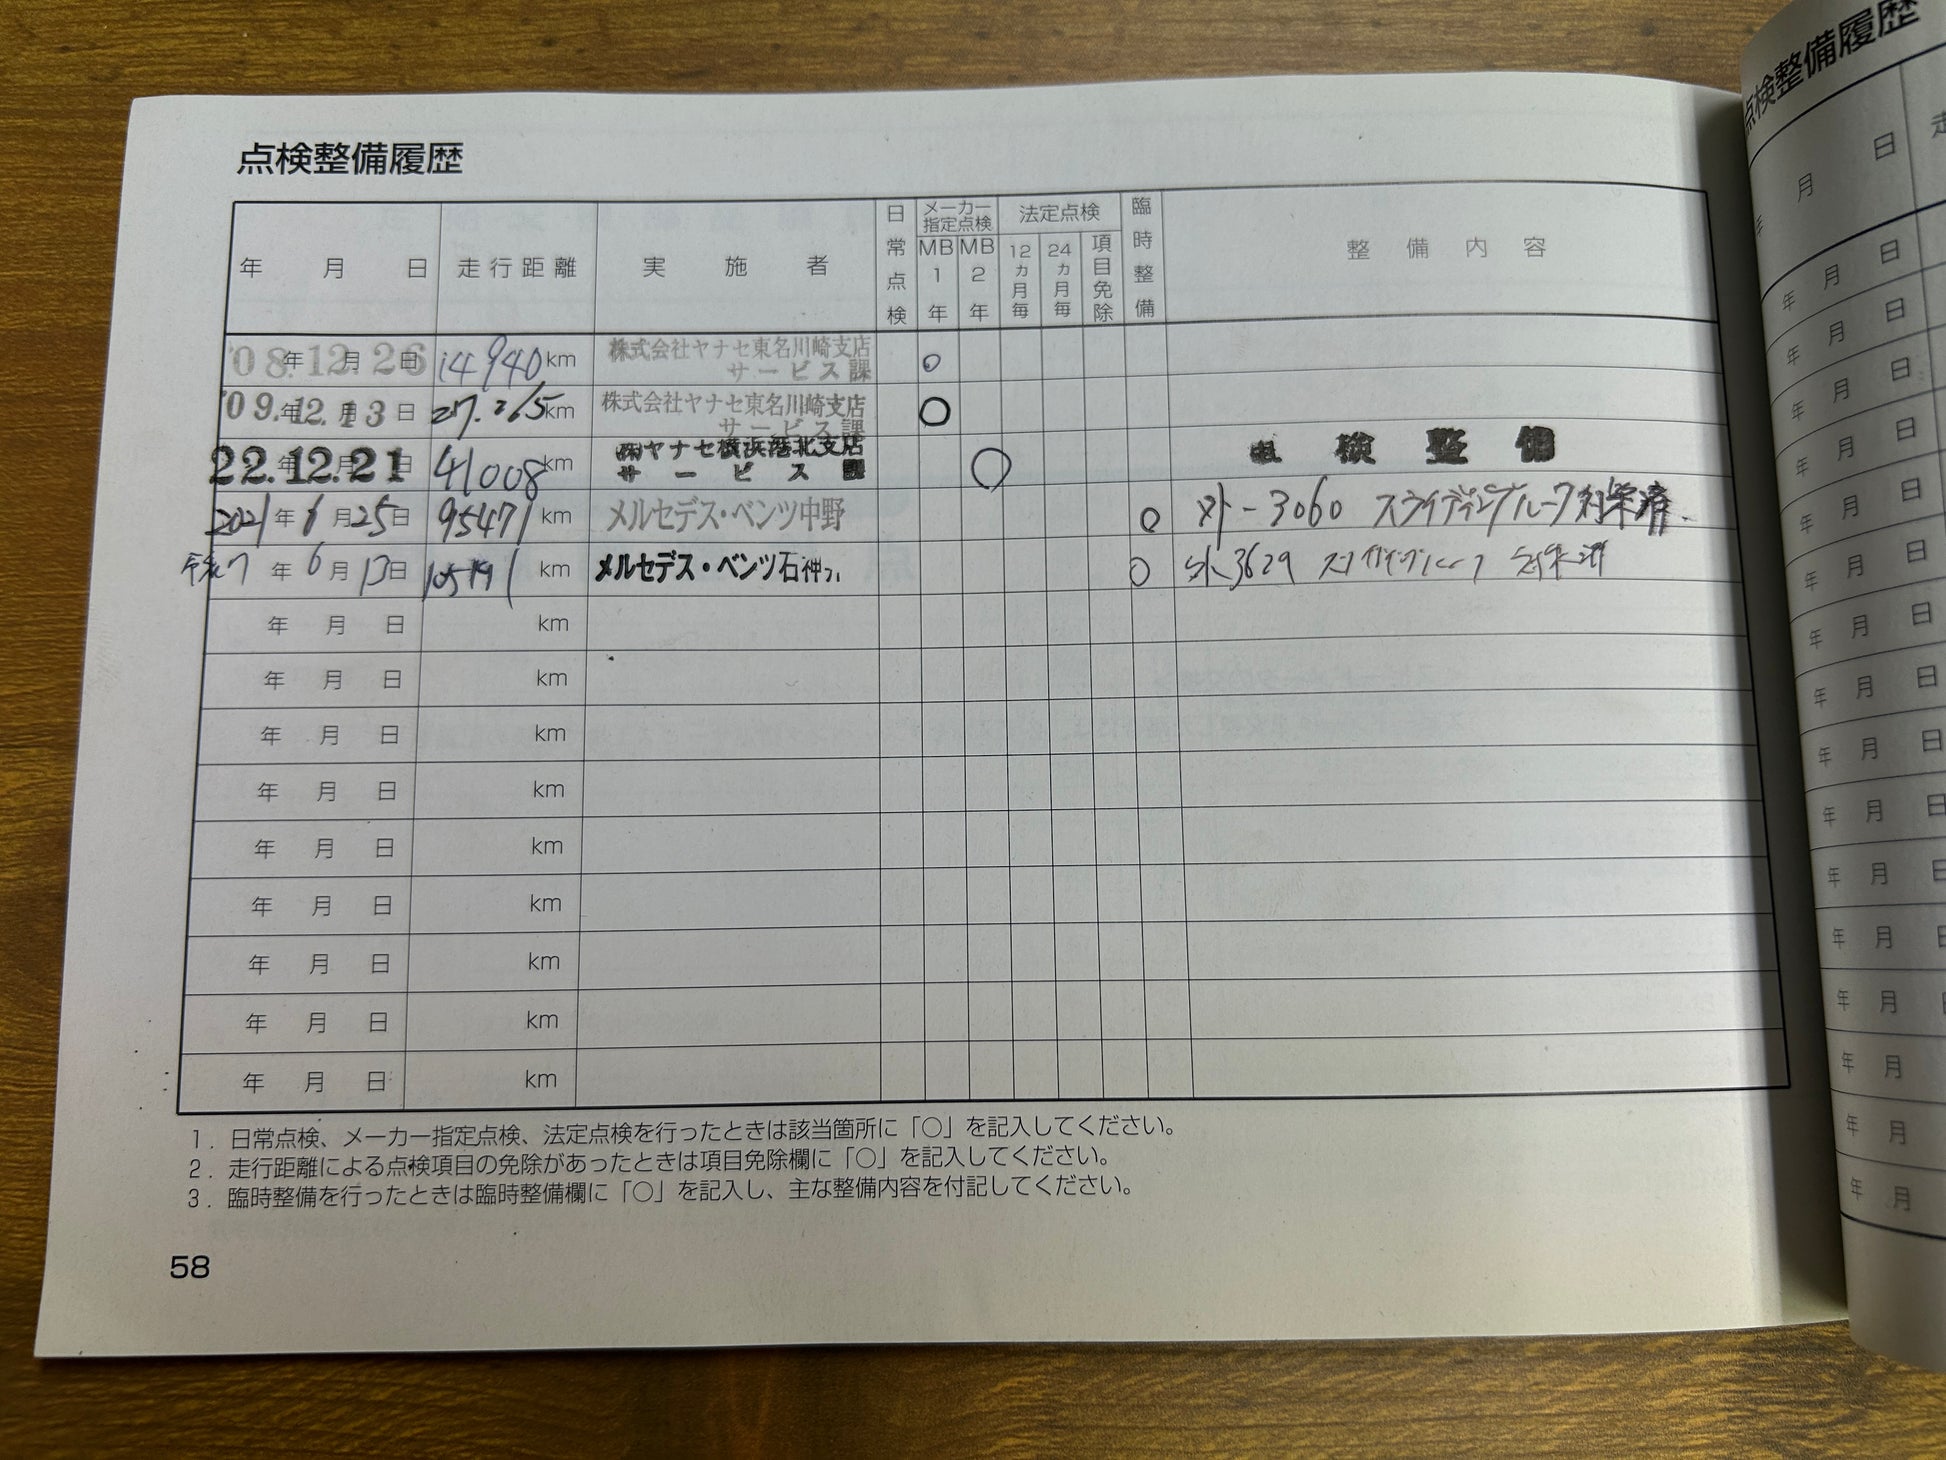 点検整備履歴
年 月 日 走行距離 実施者 日常点検 メーカー指定点検 MB1年 MB2年 法定点検 12ヵ月毎 24ヵ月毎 項目免除 臨時整備 整備内容
'08年12月26日 14940km 株式会社ヤナセ東名川崎支店 ○
サービス課
'09.年12.月13日 27.265km 株式会社ヤナセ東名川崎支店 ○
サービス課
22.年12.月21日 41008km ㈱ヤナセ横浜港北支店 ○ 検整備
サービス課
2021年6月25日 95471km メルセデス・ベンツ中野 ○ 外-3060 スライディングルーフ対策済
令和7年6月13日 km メルセデス・ベンツ石神 ○ 外3629
年 月 日 km
年 月 日 km
年 月 日 km
年 月 日 km
年 月 日 km
年 月 日 km
年 月 日 km
年 月 日 km
年 月 日 km
1．日常点検、メーカー指定点検、法定点検を行ったときは該当箇所に「○」を記入してください。
2．走行距離による点検項目の免除があったときは項目免除欄に「○」を記入してください。
3．臨時整備を行ったときは臨時整備欄に「○」を記入し、主な整備内容を付記してください。
58
点検整備履歴
年 月 日 走
年 月 日
年 月 日
年 月 日
年 月 日
年 月 日
年 月 日
年 月 日
年 月 日
年 月 日
年 月 日
年 月 日
年 月 日
年 月 日
年 月
年 月
年 月